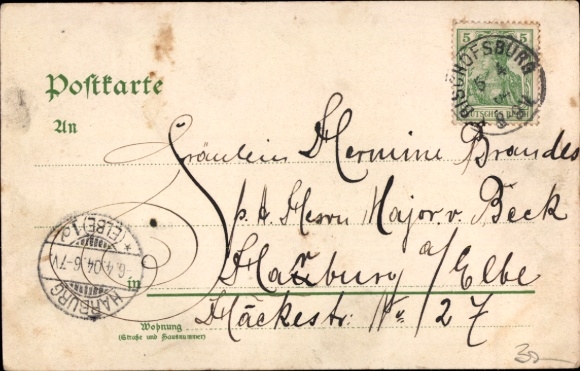 5 5
BISCHOFSBURG
DEUTSCHES REICH
Postkarte
An
Fräulein Hermine Brandes
p. A. Herrn Major v. Beck
in Harburg a/Elbe
Häckestr. Nr. 27
Wohnung
(Straße und Hausnummer)
HARBURG
6.4.04.6-7V
(ELBE) 1